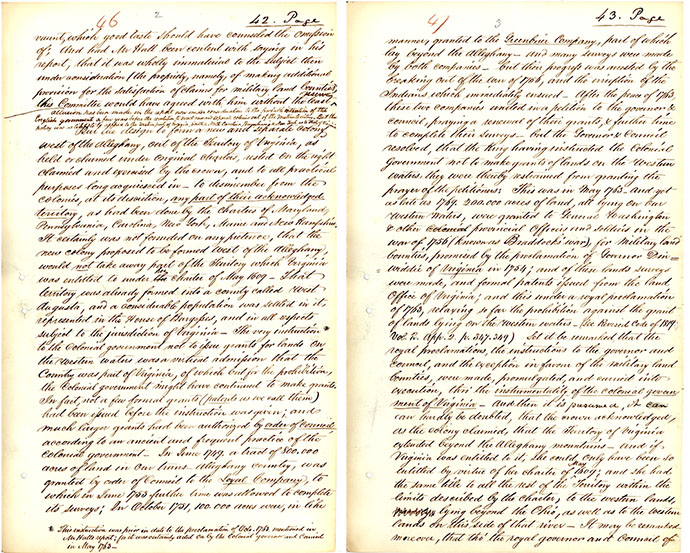 46 2 42. Page
vaunt, which good taste should have counseled the omission
of; And had Mr Hall been content with saying in his
report, that it was wholly immaterial to the subject then
under consideration (the propriety, namely, of making additional
provision for the satisfaction of claims for military land bounties,
this Committee would have agreed with him without the least
reserve
But the design to form a new and separate colony
west of the Alleghany, out of the Territory of Virginia, as
held or claimed under original charters, rested on the right
claimed and exercised by the crown, and to all practical
purposes long acquiesced in – to dismember from the
colonies, at its discretion, any part of their acknowledged
territory, as had been done by the charters of Maryland,
Pennsylvania, Carolina, New York, Maine and New Hampshire.
It certainly was not founded on any pretence, that the
new colony proposed to be formed west of the Alleghany,
would not take away part of the Territory which Virginia
was entitled to under the Charter of May 1609 – That
territory was already formed into a county called West
Augusta, and a considerable population was settled in it,
represented in the House of Burgesses, and in all respects
subject to the jurisdiction of Virginia – The very instruction *
to the Colonial government not to issue grants for lands on
the Western waters was a virtual admission that the
Country was part of Virginia, of which but for the prohibition,
the Colonial government might have continued to make grants.
In fact, not a few formal grants (patents as we call them)
had been issued before the instruction was given; and
much larger grants had been authorized by order of council
according to an ancient and frequent practice of the
colonial government – In June 1749. a tract of 800,000
acres of land in our trans-alleghany country, was
granted by order of Council to the Loyal Company, to
which in June 1753 further time was allowed to complete
its surveys; In October 1751, 100,000 acres were, in like
* This instruction was prior in date to the proclamation of Octo. 1763 mentioned in
Mr Halls report; for it was certainly acted on by the Colonial governor and Council
in May 1763 –
41 3 43. Page
manner, granted to the Greenbrier Company, part of which
lay beyond the Alleghany – And many surveys were made
by both companies – But their progress was arrested by the
breaking out of the war of 1756, and the irruption of the
Indians which immediately ensued – After the peace of 1763.
these two companies united in a petition to the governor &
council, praying a renewal of their grants, & further time
to complete their surveys – but the Governor & Council
resolved, that the King having instructed the Colonial
Government not to make grants of lands on the Western
waters, they were thereby restrained from granting the
prayer of the petitioners. This was in May 1763. And yet
as late as 1769. 200.000 acres of land, all lying on our
Western Waters, were granted to General Washington
& other Colonial provincial Officers and soldiers in the
war of 1756 (known as Braddock's war), for Military land
bounties, promised by the proclamation of Governor Din-
widdie of Virginia in 1754; and of these lands surveys
were made, and formal patents issued from the Land
Office of Virginia; and this under a royal proclamation
of 1763, relaxing so far the prohibition against the grant
of lands lying on the Western waters – See Revised Code of 1819.
Vol. 2. App. 2. p. 347. 349) Let it be remarked that the
royal proclamations, the instructions to the governor and
council, and the exception in favour of the military land
bounties, were made, promulgated, and carried into
execution, thro' the instrumentality of the colonial govern-
ment of Virginia – And then it is presumed, it can
can hardly be doubted, that the crown acknowledged,
as the colony claimed, that the Territory of Virginia
extended beyond the Alleghany mountains – And if
Virginia was entitled to it, she could only have been so
entitled by virtue of her charter of May 1609; and she had
the same title to all the rest of the Territory within the
limits described by the charter, to the western lands,
lying beyond the Ohio, as well as to the Western
lands on this side of that river – It may be remarked
moreover, that tho' the royal governor and Council of